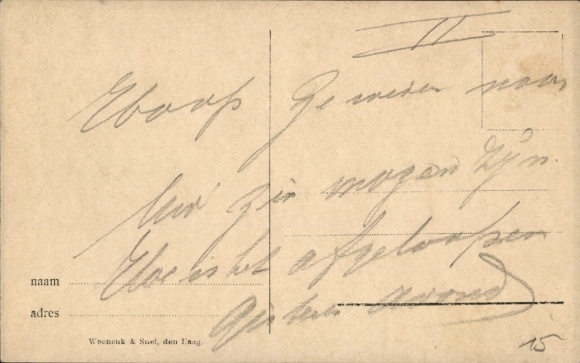 II
Hoop ze weer naar
Uw zin mogen zijn.
Hoe is het afgeloopen
Gisteren avond
naam
adres
Weenenk & Snel, den Haag.
15